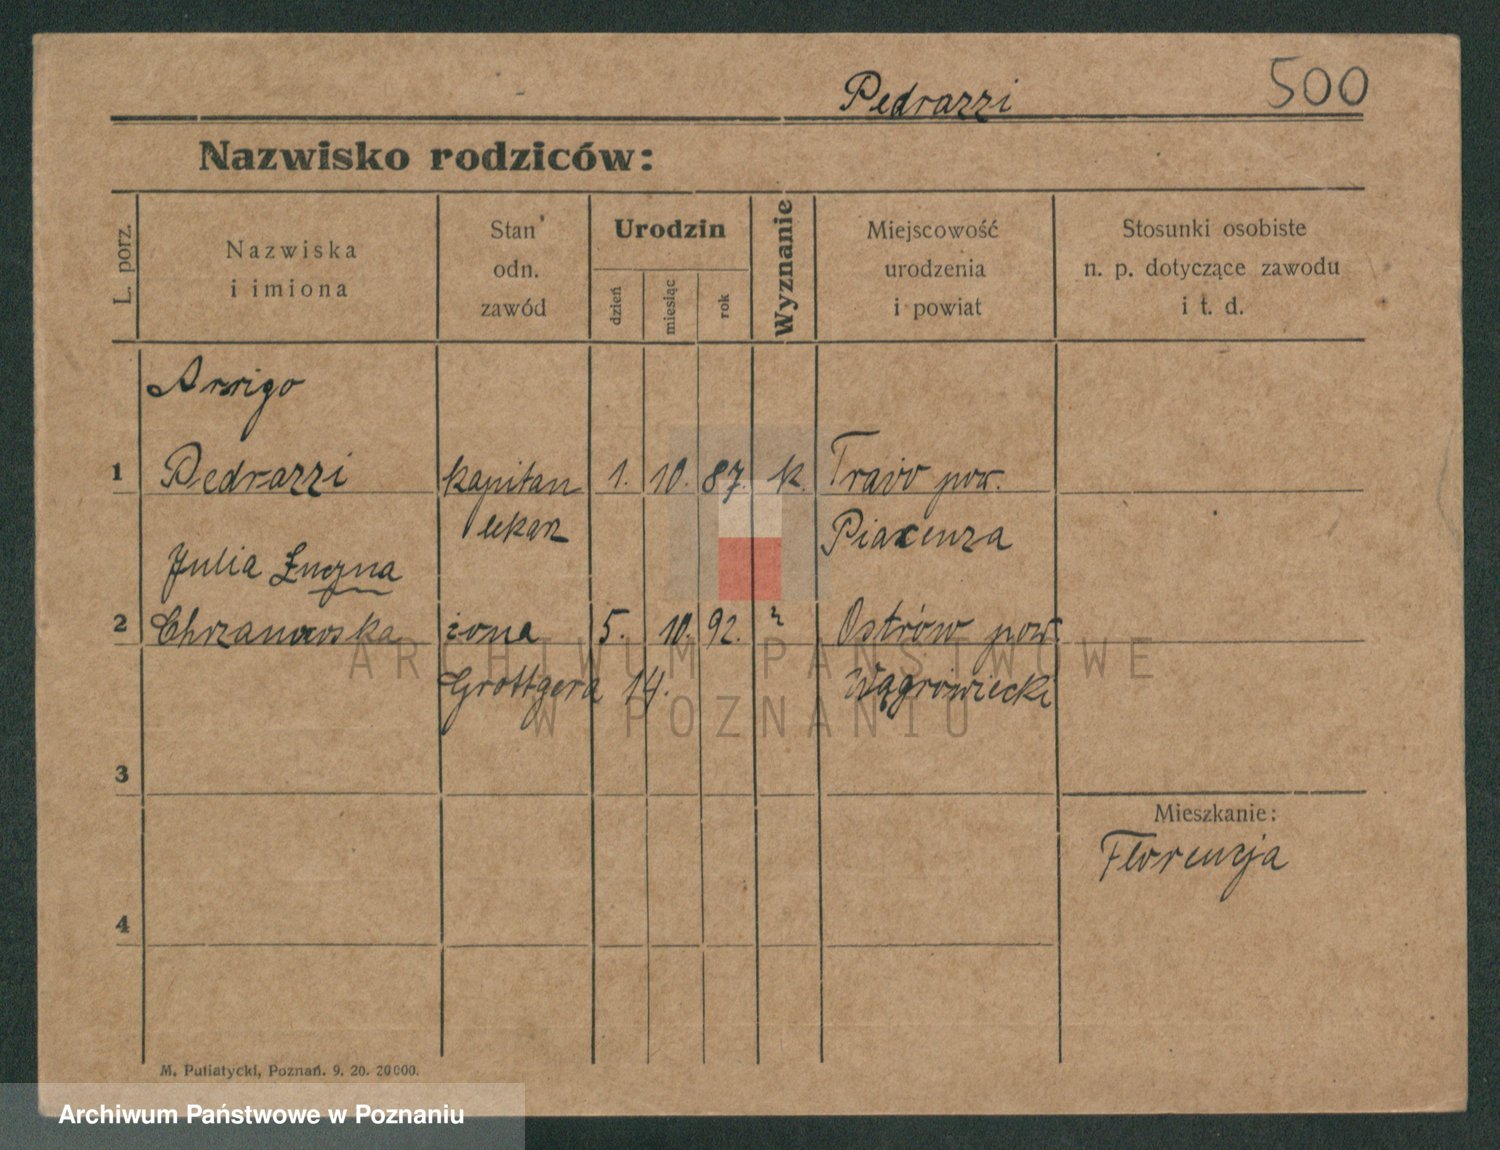 Pedrazzi 500
Nazwisko rodziców:
L. porz.
Nazwiska
i imiona
Stan
odn.
zawód
Urodzin
dzień
miesiąc
rok
Wyznanie
Miejscowość
urodzenia
i powiat
Stosunki osobiste
n. p. dotyczące zawodu
i t. d.
Arrigo
1 Pedrazzi kapitan 1. 10. 87. k. Travo pow.
lekarz Piacenza
Julia
2 Chrzanowska żona 5. 10. 92. Ostrów pow.
Grottgera 14. Wągrowiecki
3
Mieszkanie:
Florencja
4
M. Putiatycki, Poznań. 9. 20. 20000.
ARCHIWUM PAŃSTWOWE
W POZNANIU
Archiwum Państwowe w Poznaniu